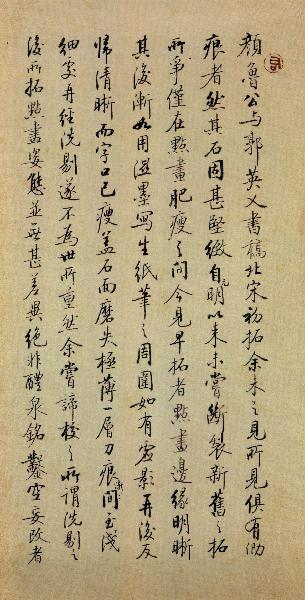 顏魯公与郭英乂書稿北宋初拓余未之見所見俱有泐
痕者然其石固甚堅緻自元明以來未嘗斷裂新舊之拓
所爭僅在點畫肥瘦之間今見早拓者點畫邊緣明晰
其後漸如用濕墨寫生紙筆之周圍如有虛影再後反
歸清晰而字口已瘦蓋石面磨失極薄一層刀痕漸間至淺
細矣再經洗剔遂不為世所重然余嘗諦校之所謂洗剔之
後所拓點畫姿態並無甚差異絕非醴泉銘鑿空妄改者